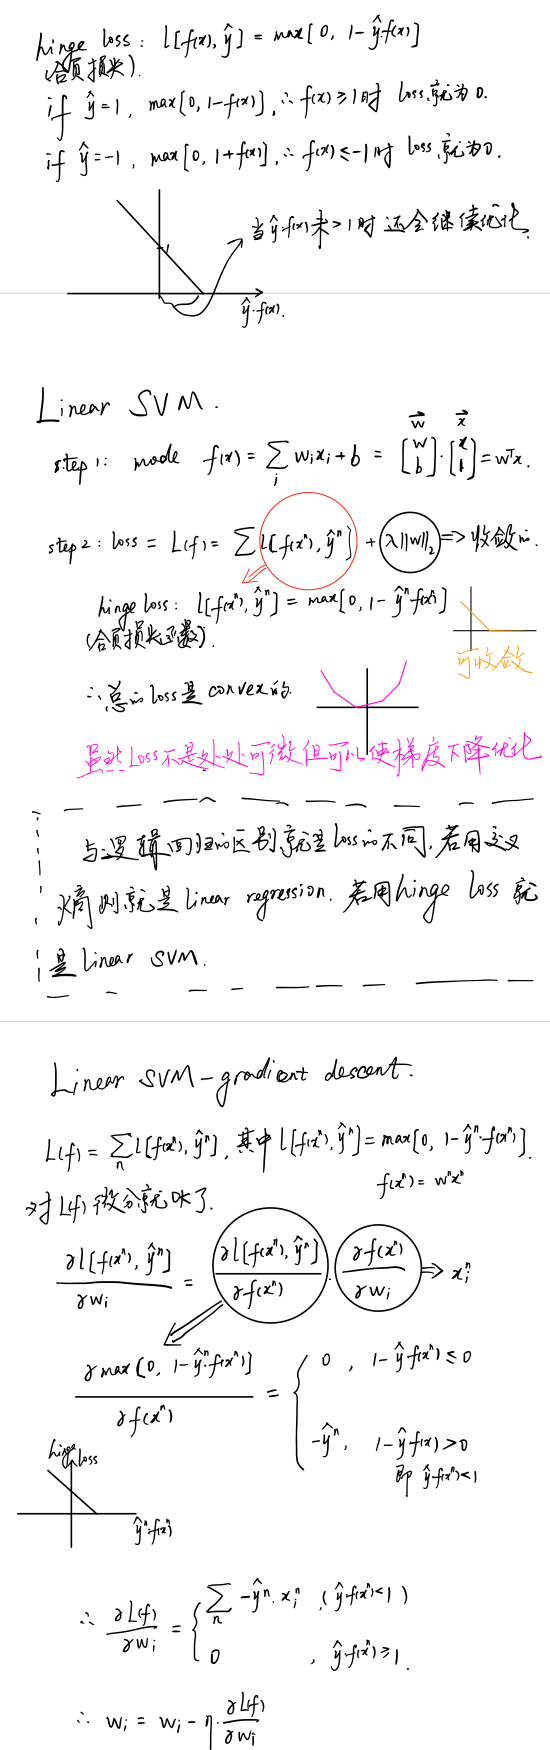 hinge loss: l[f(x), ŷ] = max[0, 1-ŷ·f(x)]
(合页损失).
if ŷ=1, max[0, 1-f(x)], ∴ f(x)≥1时 loss就为0.
if ŷ=-1, max[0, 1+f(x)], ∴ f(x)≤-1时 loss就为0.
当ŷ·f(x)未>1时 还会继续优化.
ŷ·f(x).
Linear SVM.
step1: mode f(x) = ∑_i w_i x_i + b = [w b]·[x 1] = wᵀx.
w⃗ x⃗
step2: loss = L(f) = ∑ l[f(xⁿ), ŷⁿ] + λ||w||₂ => 收敛的.
hinge loss: l[f(xⁿ), ŷⁿ] = max[0, 1-ŷⁿf(xⁿ)]
(合页损失函数).
可收敛
∴ 总的loss是convex的
虽然Loss不是处处可微但可以使梯度下降优化
与逻辑回归的区别就是loss的不同, 若用交叉
熵则就是linear regression. 若用hinge loss 就
是linear SVM.
Linear SVM-gradient descent.
L(f) = ∑_n l[f(xⁿ), ŷⁿ], 其中 l[f(xⁿ), ŷⁿ] = max[0, 1-ŷⁿ·f(xⁿ)].
f(xⁿ) = wⁿxⁿ
对L(f)微分就OK了.
∂l[f(xⁿ), ŷⁿ]/∂w_i = ∂l[f(xⁿ), ŷⁿ]/∂f(xⁿ) · ∂f(xⁿ)/∂w_i => x_iⁿ
∂max[0, 1-ŷⁿ·f(xⁿ)]/∂f(xⁿ) = { 0, 1-ŷ·f(xⁿ)≤0
-ŷⁿ, 1-ŷ·f(x)>0
即 ŷ·f(xⁿ)<1
hinge loss
ŷⁿ·f(xⁿ)
∴ ∂L(f)/∂w_i = { ∑_n -ŷⁿ·x_iⁿ, (ŷ·f(xⁿ)<1)
0, ŷ·f(xⁿ)≥1.
∴ w_i = w_i - η·∂L(f)/∂w_i